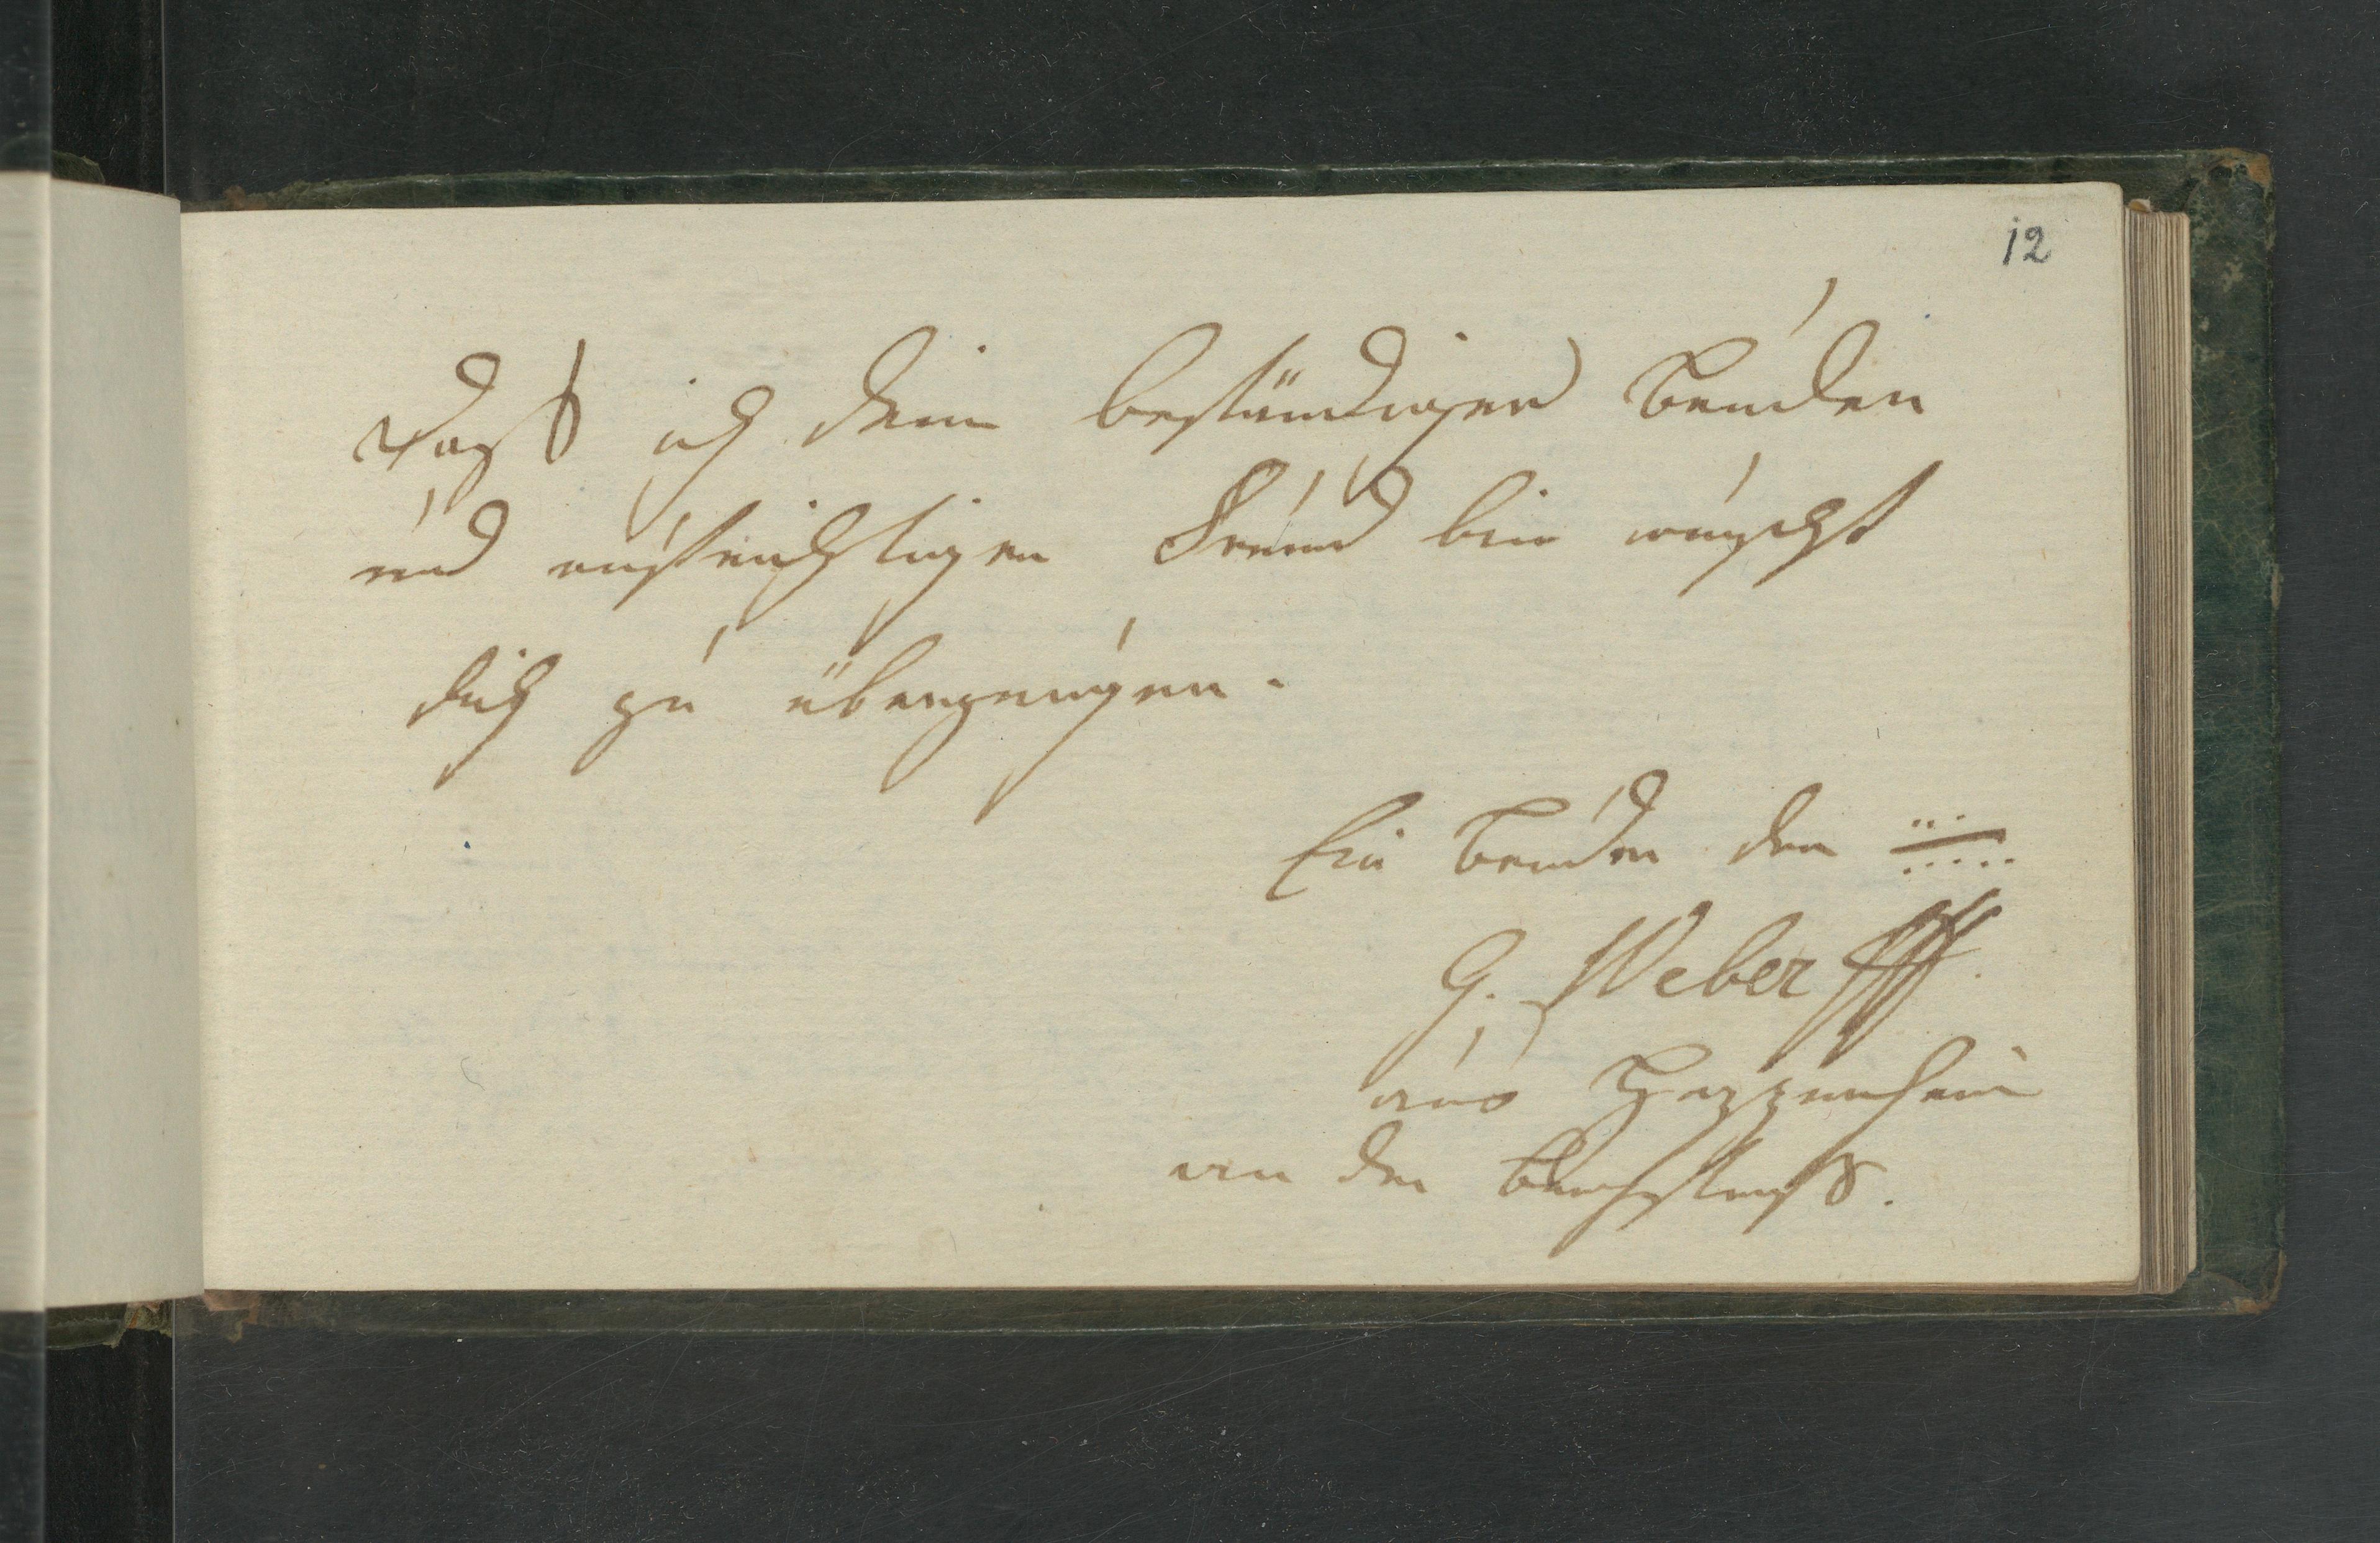 12
Daß ich dein beständiger Bruder
und aufrichtiger Freund bin wünscht
dich zu überzeugen.
Ein Bruder der
G. Weber
aus Heppenheim
an der Bergstraß.